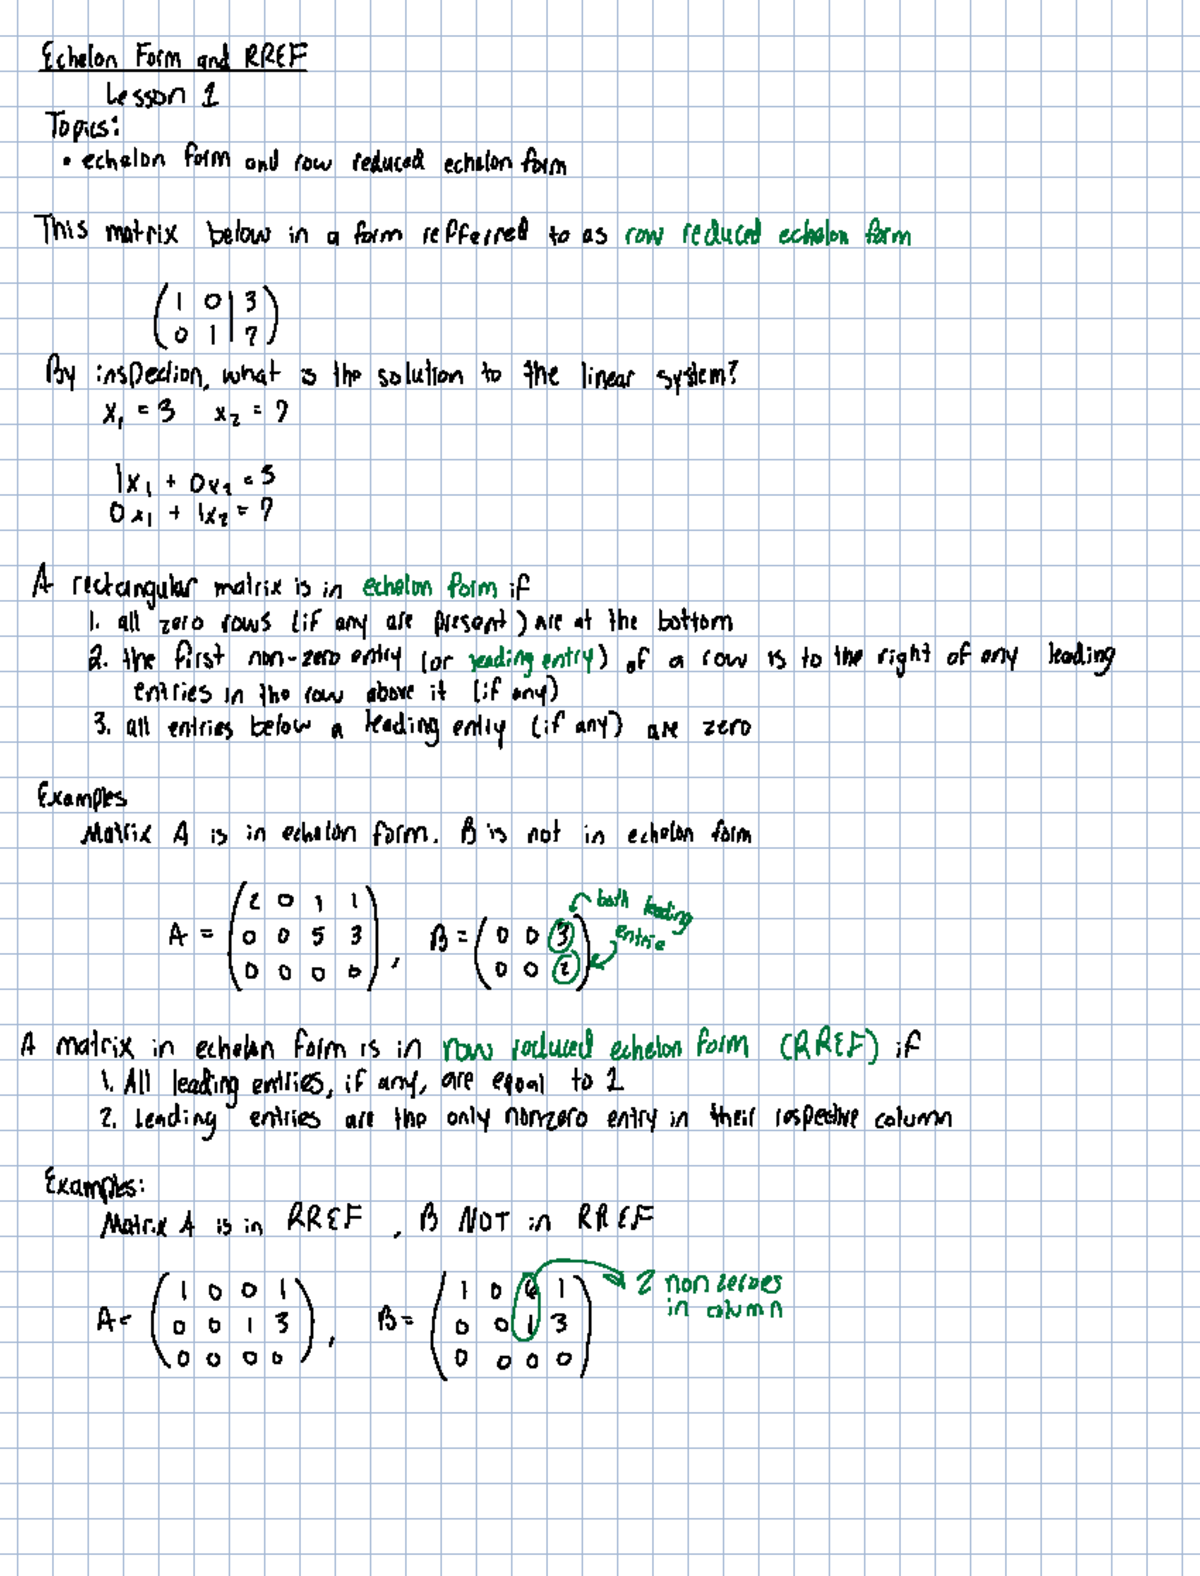 Echelon Form and RREF
Lesson 1
Topics:
• echelon form and row reduced echelon form
This matrix below in a form refferred to as row reduced echelon form
( 1 0 | 3 )
( 0 1 | 7 )
By inspection, what is the solution to the linear system?
x₁ = 3 x₂ = 7
1x₁ + 0x₂ = 3
0x₁ + 1x₂ = 7
A rectangular matrix is in echelon form if
1. all zero rows (if any are present) are at the bottom
2. the first non-zero entry (or leading entry) of a row is to the right of any leading
entries in the row above it (if any)
3. all entries below a leading entry (if any) are zero
Examples
Matrix A is in echelon form. B is not in echelon form
A = ( 2 0 1 1 )
( 0 0 5 3 )
( 0 0 0 0 ) ,
B = ( 0 0 3 )
( 0 0 2 )
both leading
entrie
A matrix in echelon form is in row reduced echelon form (RREF) if
1. All leading entries, if any, are equal to 1
2. Leading entries are the only nonzero entry in their respective column
Examples:
Matrix A is in RREF , B NOT in RREF
A = ( 1 0 0 1 )
( 0 0 1 3 )
( 0 0 0 0 ) ,
B = ( 1 0 6 1 )
( 0 0 1 3 )
( 0 0 0 0 )
2 non zeroes
in column